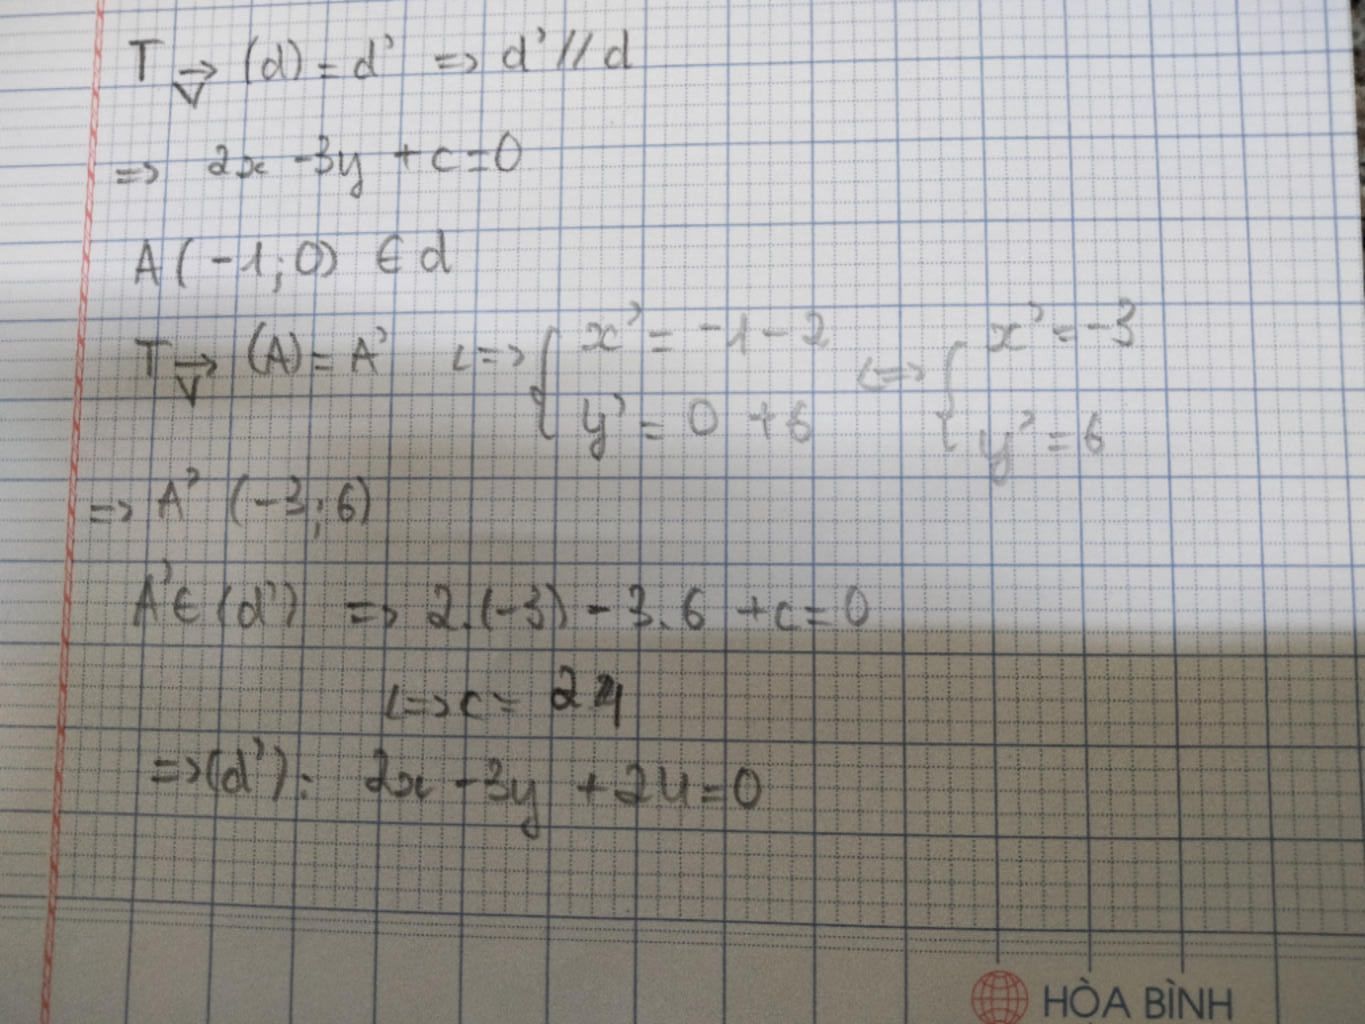 T v→ (d) = d' => d' // d
=> 2x - 3y + c = 0
A (-1; 0) ∈ d
T v→ (A) = A' <=> { x' = -1 - 2 <=> { x' = -3
y' = 0 + 6 y' = 6
=> A' (-3; 6)
A' ∈ (d') => 2.(-3) - 3.6 + c = 0
<=> c = 24
=> (d'): 2x - 3y + 24 = 0
HÒA BÌNH